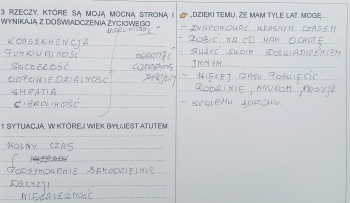 3 RZECZY, KTÓRE SĄ MOJĄ MOCNĄ STRONĄ I
WYNIKAJĄ Z DOŚWIADCZENIA ŻYCIOWEGO
KONSEKWENCJA
PUNKTUALNOŚĆ
SZCZEROŚĆ
ODPOWIEDZIALNOŚĆ
EMPATIA
CIERPLIWOŚĆ
1 SYTUACJA, W KTÓREJ WIEK BYŁ/JEST ATUTEM.
WOLNY CZAS
PODEJMOWANIE SAMODZIELNIE
DECYZJI
NIEZALEŻNOŚĆ
„DZIĘKI TEMU, ŻE MAM TYLE LAT, MOGĘ...
- DYSPONOWAĆ WŁASNYM CZASEM
- ROBIĆ NA CO MAM OCHOTĘ
- SŁUŻYĆ SWOIM DOŚWIADCZENIEM
INNYM
- WIĘCEJ CZASU POŚWIĘCIĆ
RODZINIE, WNUKOM, PASJI